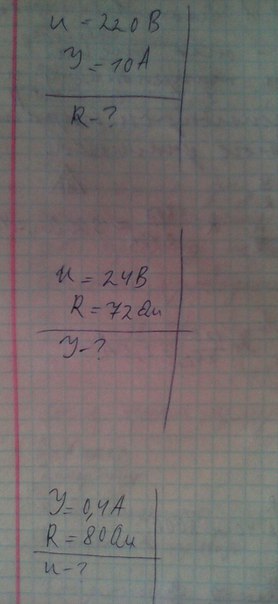 U = 220 В
У = 10 А
R - ?
U = 24 В
R = 72 Ом
У - ?
У = 0,4 А
R = 80 Ом
U - ?